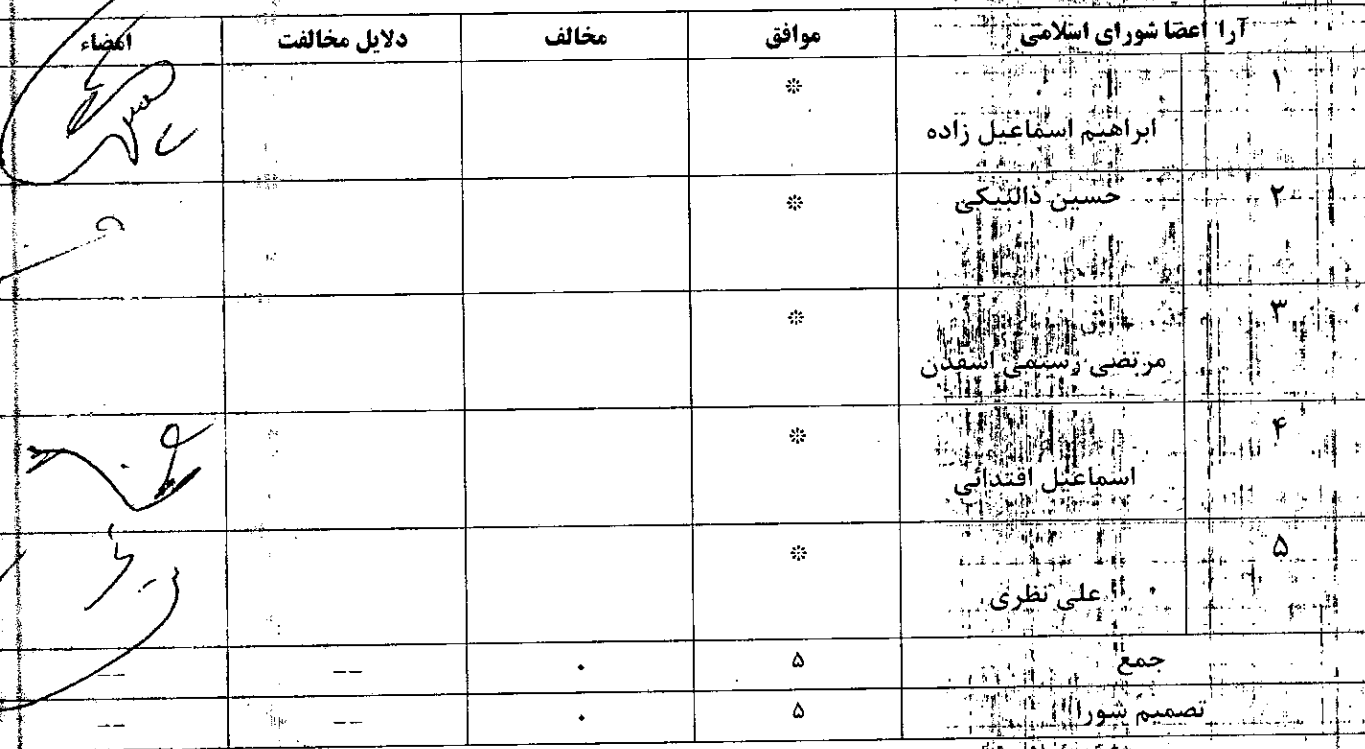 آرا اعضا شورای اسلامی موافق مخالف دلایل مخالفت امضاء
۱ ابراهیم اسماعیل زاده *
۲ حسین دالبیکی *
۳ مرتضی رستمی اسفدن *
۴ اسماعیل اقتدائی *
۵ علی نظری *
جمع ۵ ۰ -- --
تصمیم شورا ۵ ۰ -- --